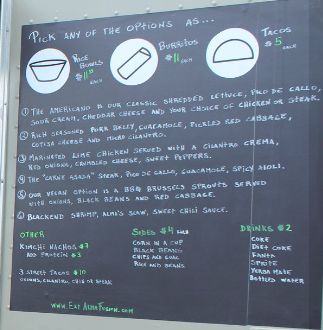 Pick any of the options as...
Rice Bowls $11.50 each
Burritos $11 each
Tacos $5 each
① The Americano is our classic shredded lettuce, pico de gallo,
sour cream, cheddar cheese and your choice of chicken or steak.
② Rich seasoned pork belly, guacamole, pickled red cabbage,
cotija cheese and micro cilantro.
③ Marineted lime chicken served with a cilantro crema,
red onions, crumbled cheese, sweet peppers.
④ The "carne asada" steak, pico de gallo, guacamole, spicy aioli.
⑤ Our vegan option is a BBQ brussels sprouts served
with onions, black beans and red cabbage.
⑥ Blackend shrimp, slaw, sweet chili sauce.
Other
Kimchi Nachos $7
Add protein $3
3 street tacos $10
onions, cilantro, chix or steak
Sides $4 each
Corn in a cup
Black beans
Chips and guac
Rice and beans
Drinks $2
Coke
Diet Coke
Fanta
Sprite
Yerba mate
Bottled water
www.EatAlmaFusion.com